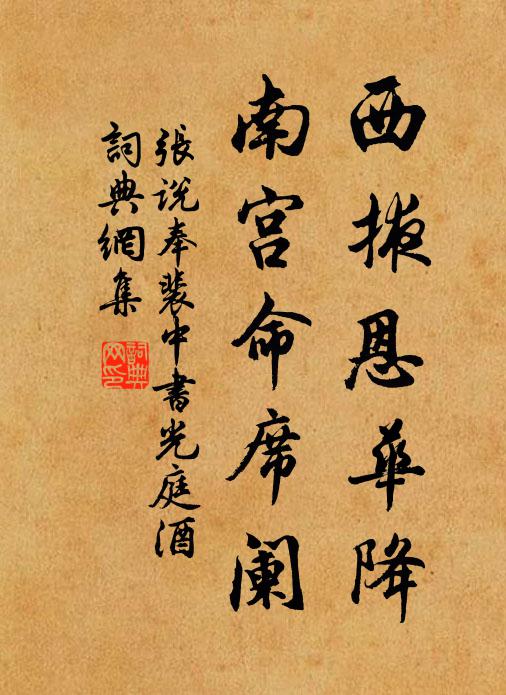 西掖恩華降
南宫命席阑
張説奉裴中書光庭酒
詞典網集
詞典
网印